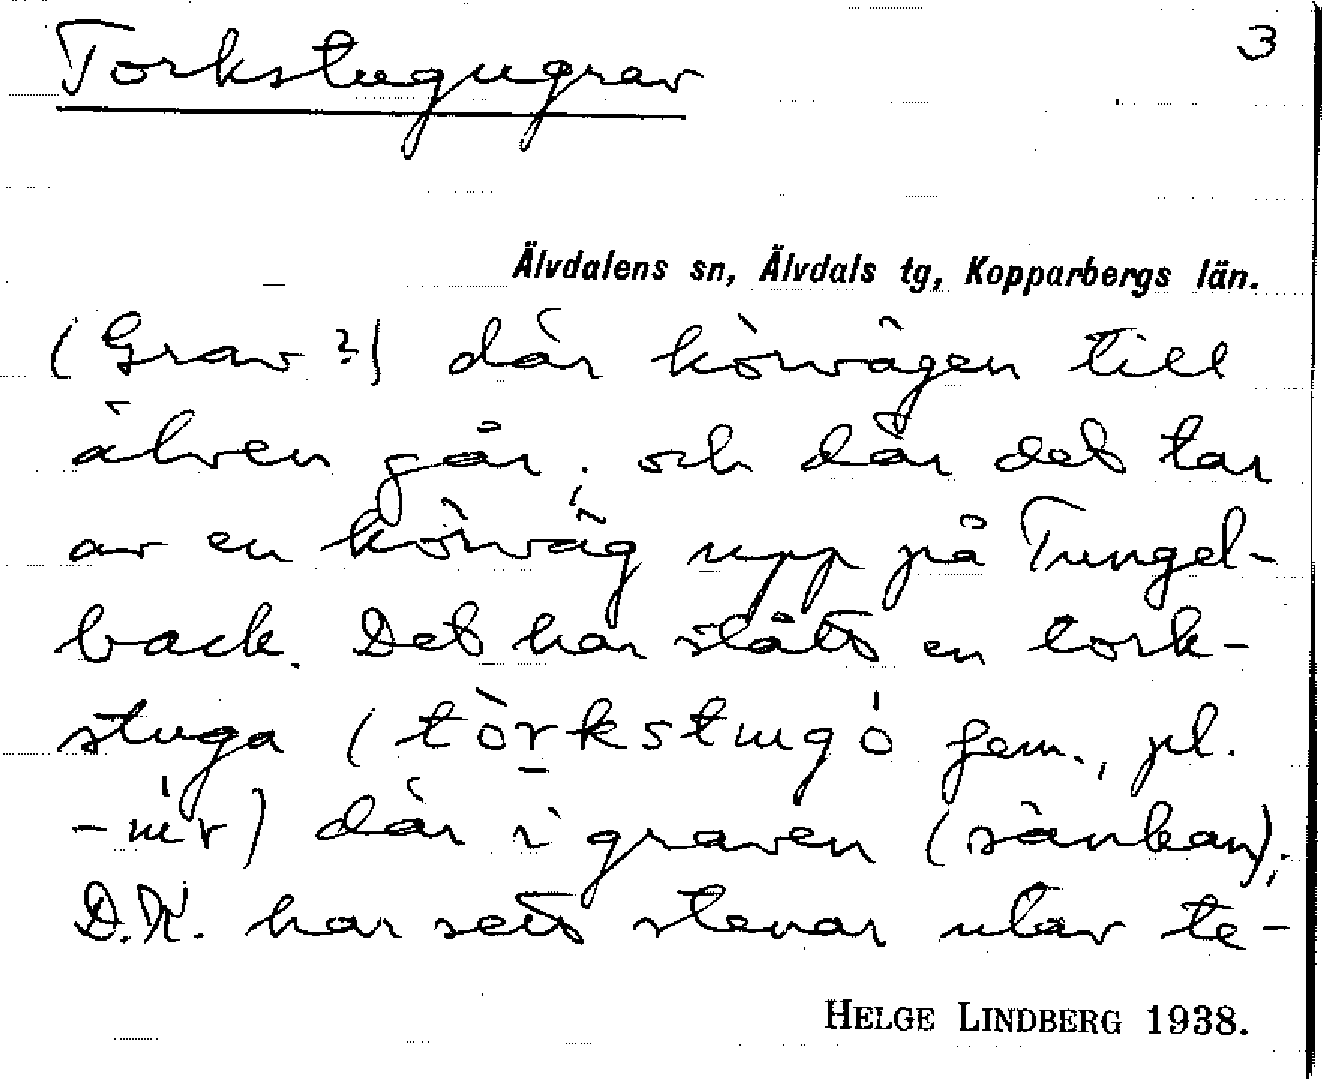 Torkstugugrav
3
Älvdalens sn, Älvdals tg, Kopparbergs län.
(Grav?) där körvägen till
älven går, och där det tar
av en körväg upp på Tungel-
back. Det har ståtts en tork-
stuga (tòrkstugó fem., pl.
-ur) där i graven (sänkan);
D.K. har sett stenar utav te-
HELGE LINDBERG 1938.